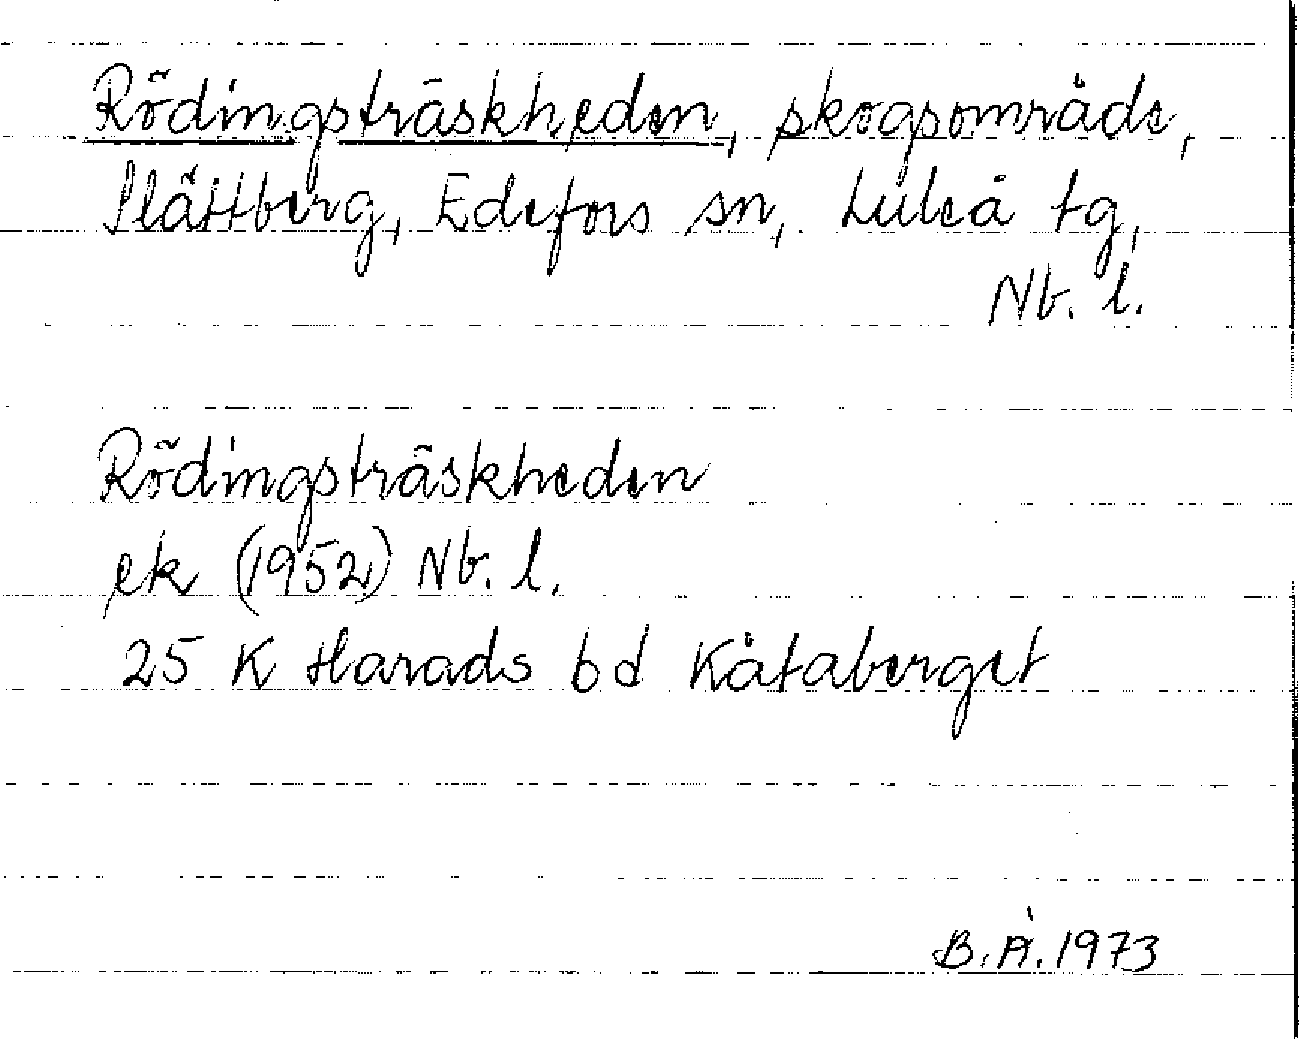 Rödingsträskheden, skogsområde,
Slättberg, Edefors sn, Luleå tg,
Nb. l.
Rödingsträskheden
ek (1952) Nb. l.
25 K Harads bd Kåtaberget
B. Å. 1973